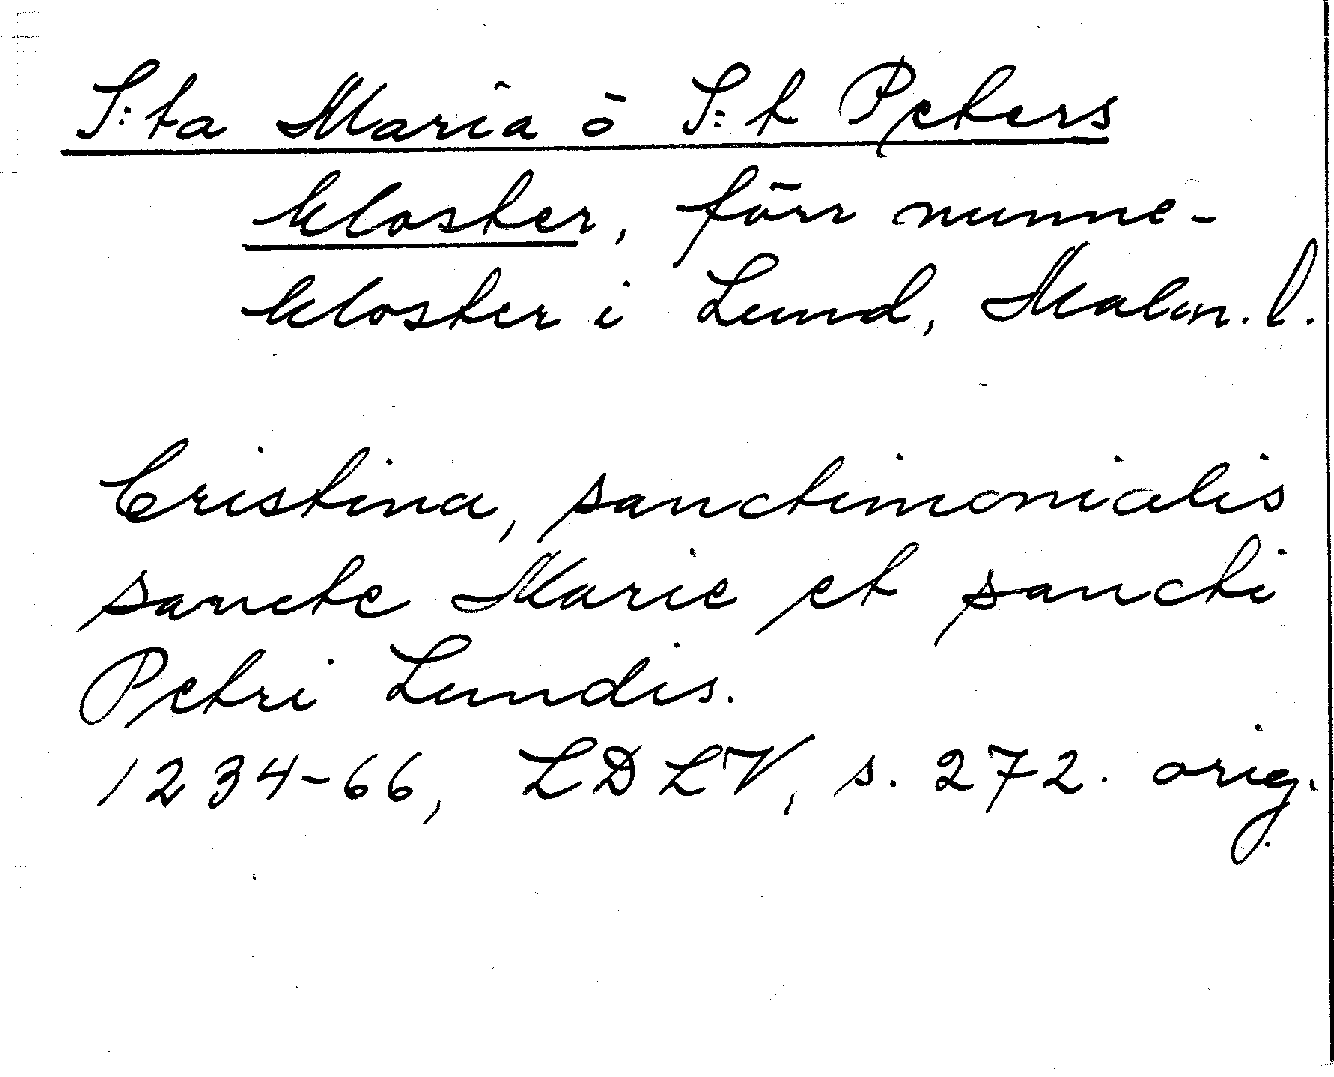 S:ta Maria ō S:t Peters
kloster, förr nunne-
kloster i Lund, Malm. l.
Cristina, sanctimonialis
sancte Marie et sancti
Petri Lundis.
1234-66, LDLV, s. 272. orig.